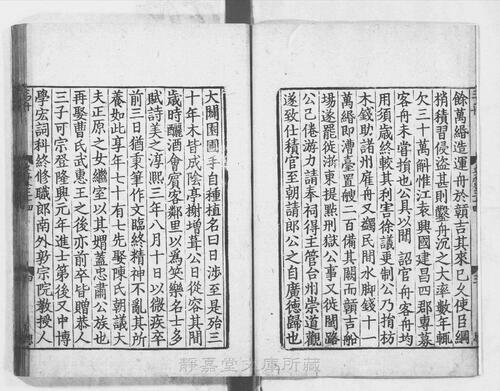 餘萬緡造運舟於贛吉其來已久使臣綱
捎積習侵盜甚則鑿舟沉之大率數年輒
欠三十萬斛惟江袁興國建昌四郡專募
客舟未嘗損也公具以聞詔官舟客舟均
用須歲終較其利害徐議更制公乃指坊
木錢助諸州雇舟又蠲民間水脚錢十一
萬緡即漕臺置艘二百備其闕而贛吉船
場遂罷徙浙東提點刑獄公事又徙閩路
公已倦游力請奉祠得主管台州崇道觀
遂致仕積官至朝請郎公之自廣德歸也
大闢園圃手自種植名曰日涉至是殆三
十年木皆成陰亭榭增葺公日從容其間
歲時釃酒會賓客鄰里以為笑樂名士多
賦詩美之淳熙三年八月十日以微疾卒
前三日猶秉筆作文臨終精神不亂其所
養如此享年七十有七先娶陳氏朝議大
夫正原之女繼室以其娣蓋忠肅公族也
再娶曹氏武惠王之後亦前卒皆贈恭人
三子可宗登隆興元年進士第後又中博
學宏詞科終修職郎南外敦宗院教授人
靜嘉堂文庫所藏